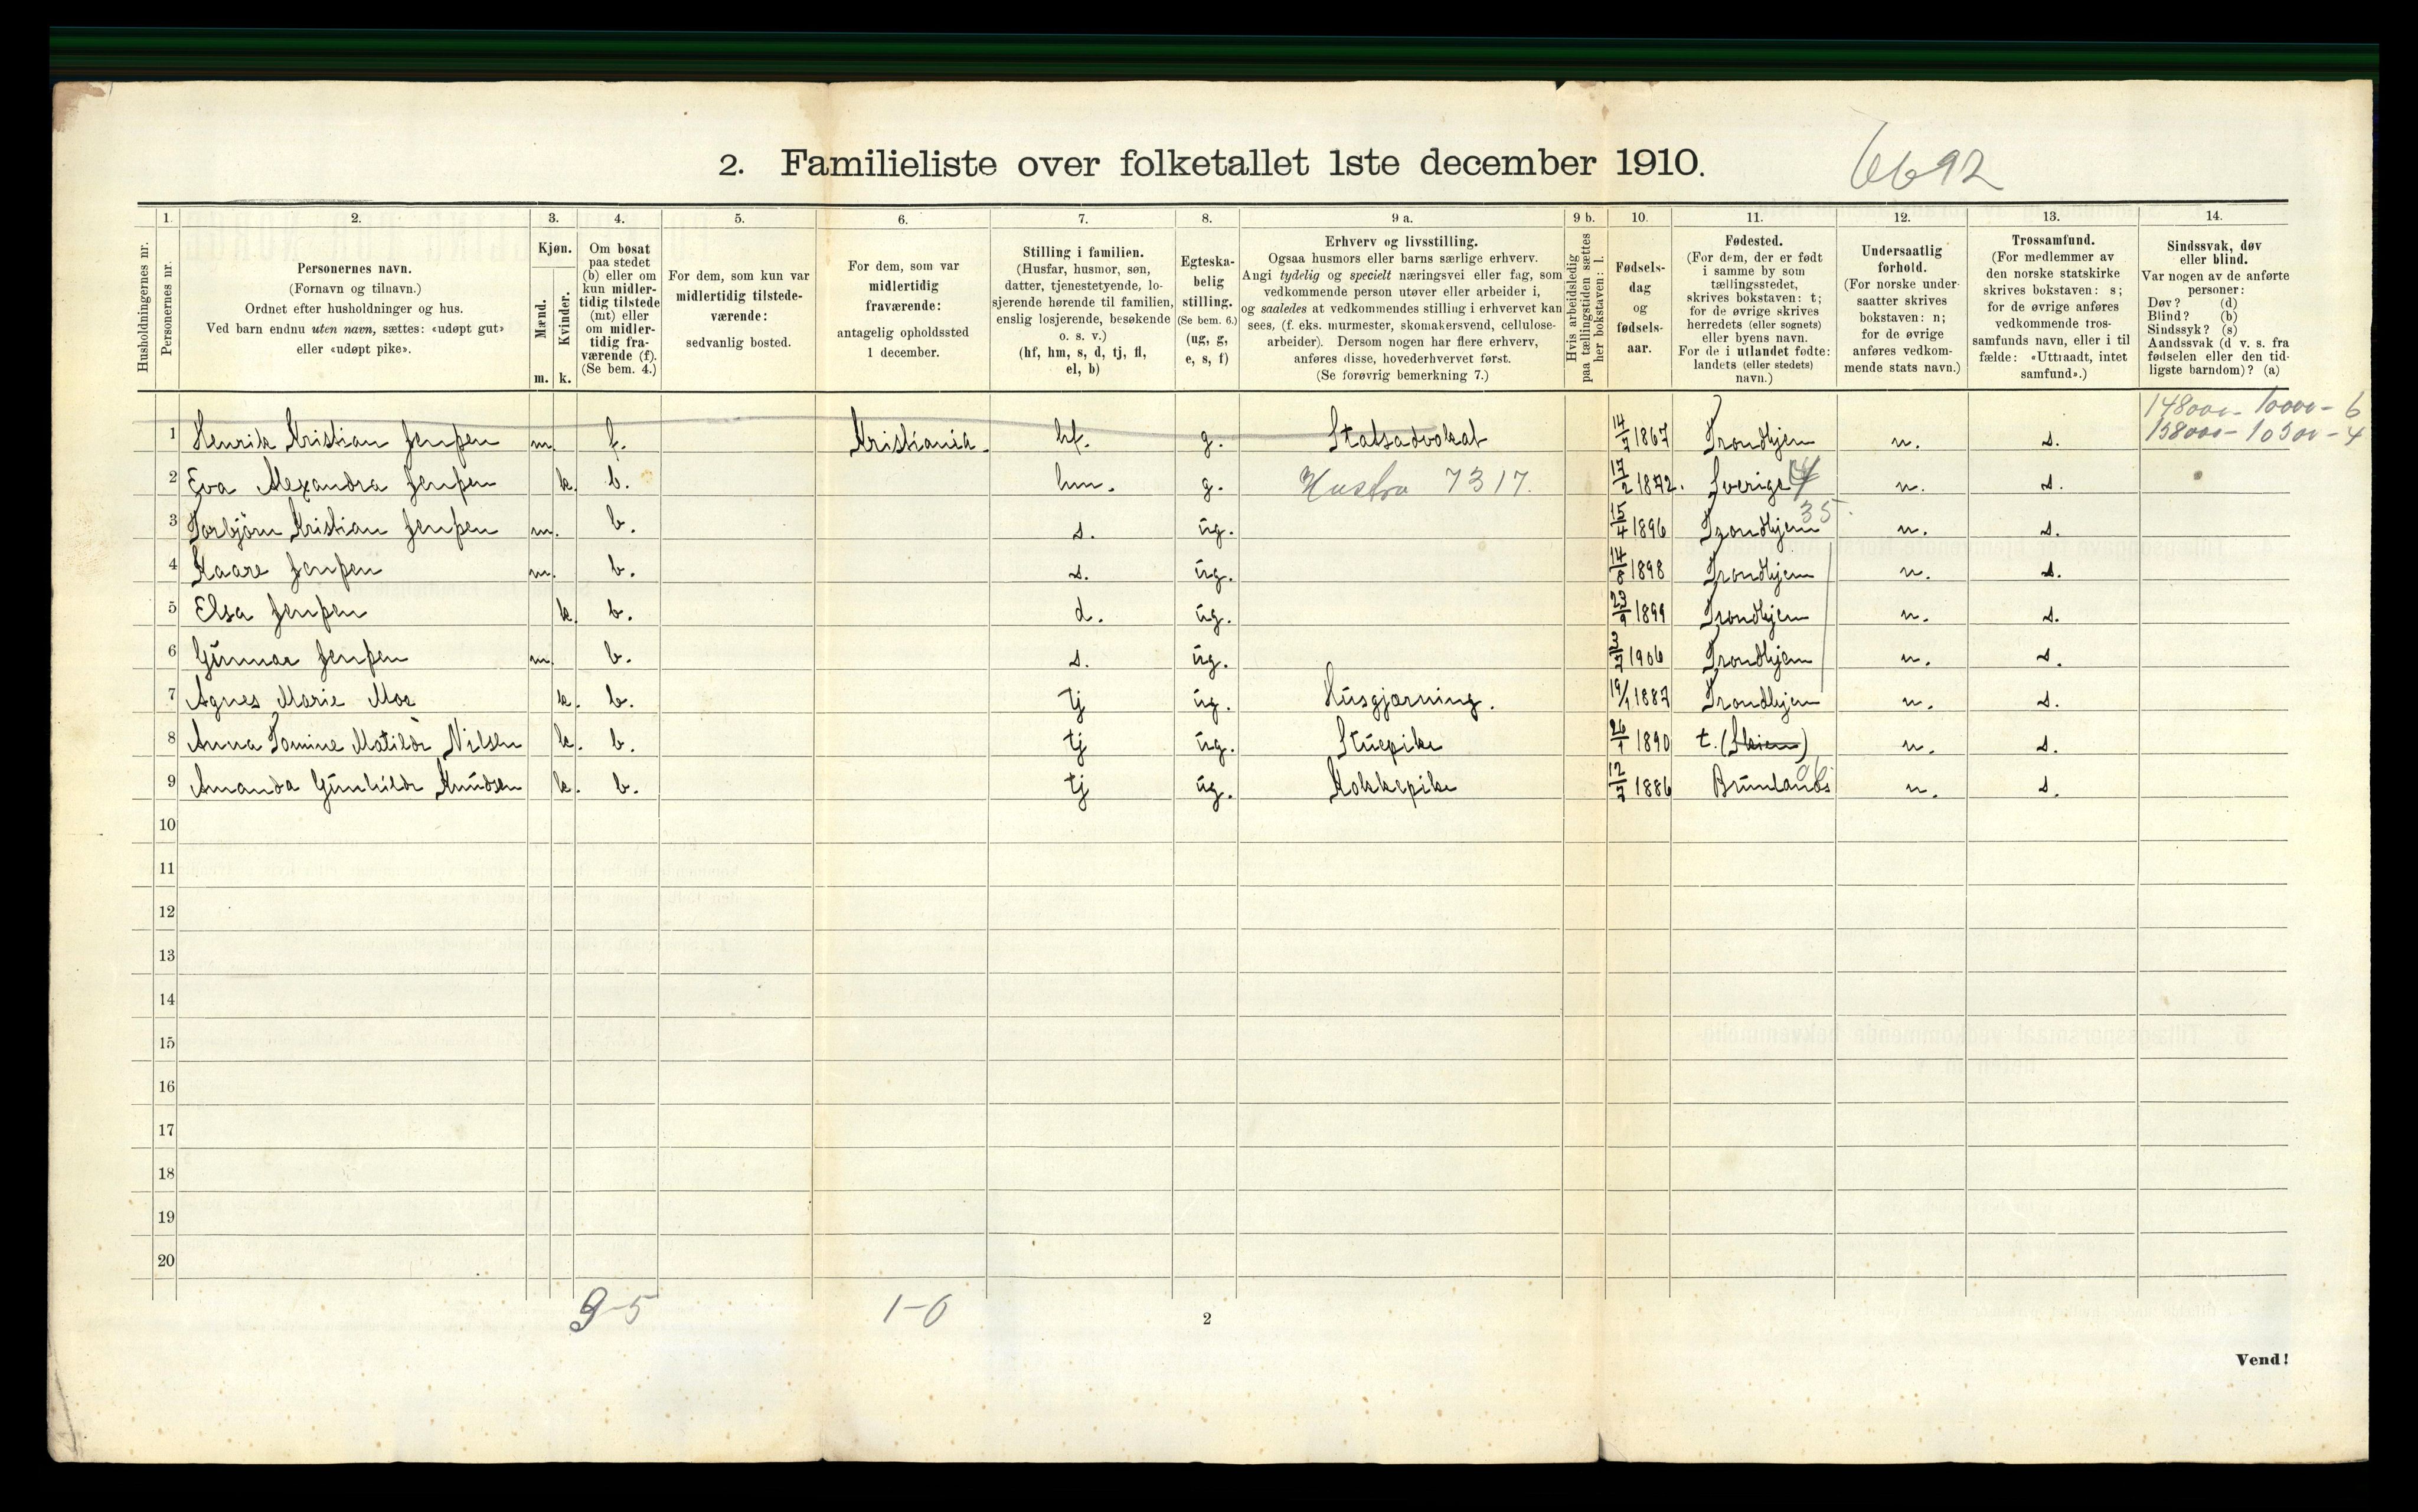 2. Familieliste over folketallet 1ste december 1910.
6692
1. 2. 3. 4. 5. 6. 7. 8. 9 a. 9 b. 10. 11. 12. 13. 14.
Husholdningernes nr.
Personernes nr.
Personernes navn.
(Fornavn og tilnavn.)
Ordnet efter husholdninger og hus.
Ved barn endnu uten navn, sættes: «udøpt gut»
eller «udøpt pike».
Kjøn.
Mænd.
Kvinder.
m. k.
Om bosat
paa stedet
(b) eller om
kun midler-
tidig tilstede
(mt) eller
om midler-
tidig fra-
værende (f).
(Se bem. 4.)
For dem, som kun var
midlertidig tilstede-
værende:
sedvanlig bosted.
For dem, som var
midlertidig
fraværende:
antagelig opholdssted
1 december.
Stilling i familien.
(Husfar, husmor, søn,
datter, tjenestetyende, lo-
sjerende hørende til familien,
enslig losjerende, besøkende
o. s. v.)
(hf, hm, s, d, tj, fl,
el, b)
Egteska-
belig
stilling.
(Se bem. 6.)
(ug, g,
e, s, f)
Erhverv og livsstilling.
Ogsaa husmors eller barns særlige erhverv.
Angi tydelig og specielt næringsvei eller fag, som
vedkommende person utøver eller arbeider i,
og saaledes at vedkommendes stilling i erhvervet kan
sees, (f. eks. murmester, skomakersvend, cellulose-
arbeider). Dersom nogen har flere erhverv,
anføres disse, hovederhvervet først.
(Se forøvrig bemerkning 7.)
Hvis arbeidsledig
paa tællingstiden sættes
her bokstaven: l.
Fødsels-
dag
og
fødsels-
aar.
Fødested.
(For dem, der er født
i samme by som
tællingsstedet,
skrives bokstaven: t;
for de øvrige skrives
herredets (eller sognets)
eller byens navn.
For de i utlandet fødte:
landets (eller stedets)
navn.)
Undersaatlig
forhold.
(For norske under-
saatter skrives
bokstaven: n;
for de øvrige
anføres vedkom-
mende stats navn.)
Trossamfund.
(For medlemmer av
den norske statskirke
skrives bokstaven: s;
for de øvrige anføres
vedkommende tros-
samfunds navn, eller i til
fælde: «Uttraadt, intet
samfund».)
Sindssvak, døv
eller blind.
Var nogen av de anførte
personer:
Døv? (d)
Blind? (b)
Sindssyk? (s)
Aandssvak (d. v. s. fra
fødselen eller den tid-
ligste barndom)? (a)
148000 - 10000 - 6
158000 - 10500 - 4
1 Henrik Kristian Jenssen m. f. Kristiania. hf. g. Statsadvokat 1867 Trondhjem n. s.
2 Eva Alexandra Jenssen k. b. hm. g. Hustru 7317. 17/2 1872. Sverige n. s.
35
3 Torbjørn Kristian Jenssen m. b. s. ug. 15/4 1896 Trondhjem n. s.
4 Kaare Jenssen m. b. s. ug. 14/8 1898 Trondhjem n. s.
5 Elsa Jenssen k. b. d. ug. 23/9 1899 Trondhjem n. s.
6 Gunnar Jenssen m. b. s. ug. 1906 Trondhjem n. s.
7 Agnes Marie Moe k. b. tj ug. Husgjærning. 19/1 1887 Trondhjem n. s.
8 Anna Tomine Matilde Nilsen k. b. tj ug. Stuepike 26/1 1890 t. (Skien) n. s.
9 Amanda Gunhilde Knudsen k. b. tj ug. Kokkepike 12/7 1886 Brunlanes n. s.
10
11
12
13
14
15
16
17
18
19
20
9-5 1-0
2
Vend!